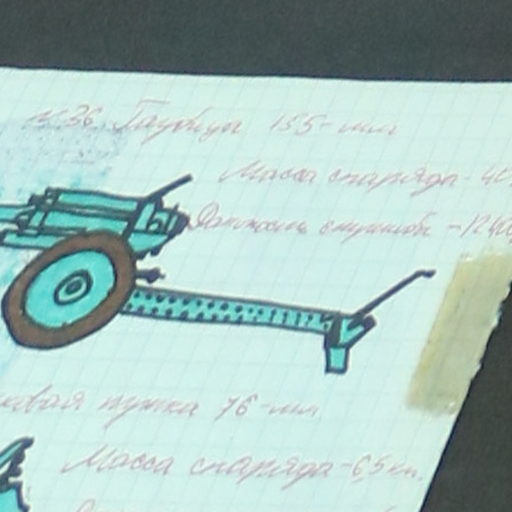 Гаубица 155-мм
Масса снаряда-
Дальность стрельбы -
пушка 76-мм
Масса снаряда-6,5 кг.